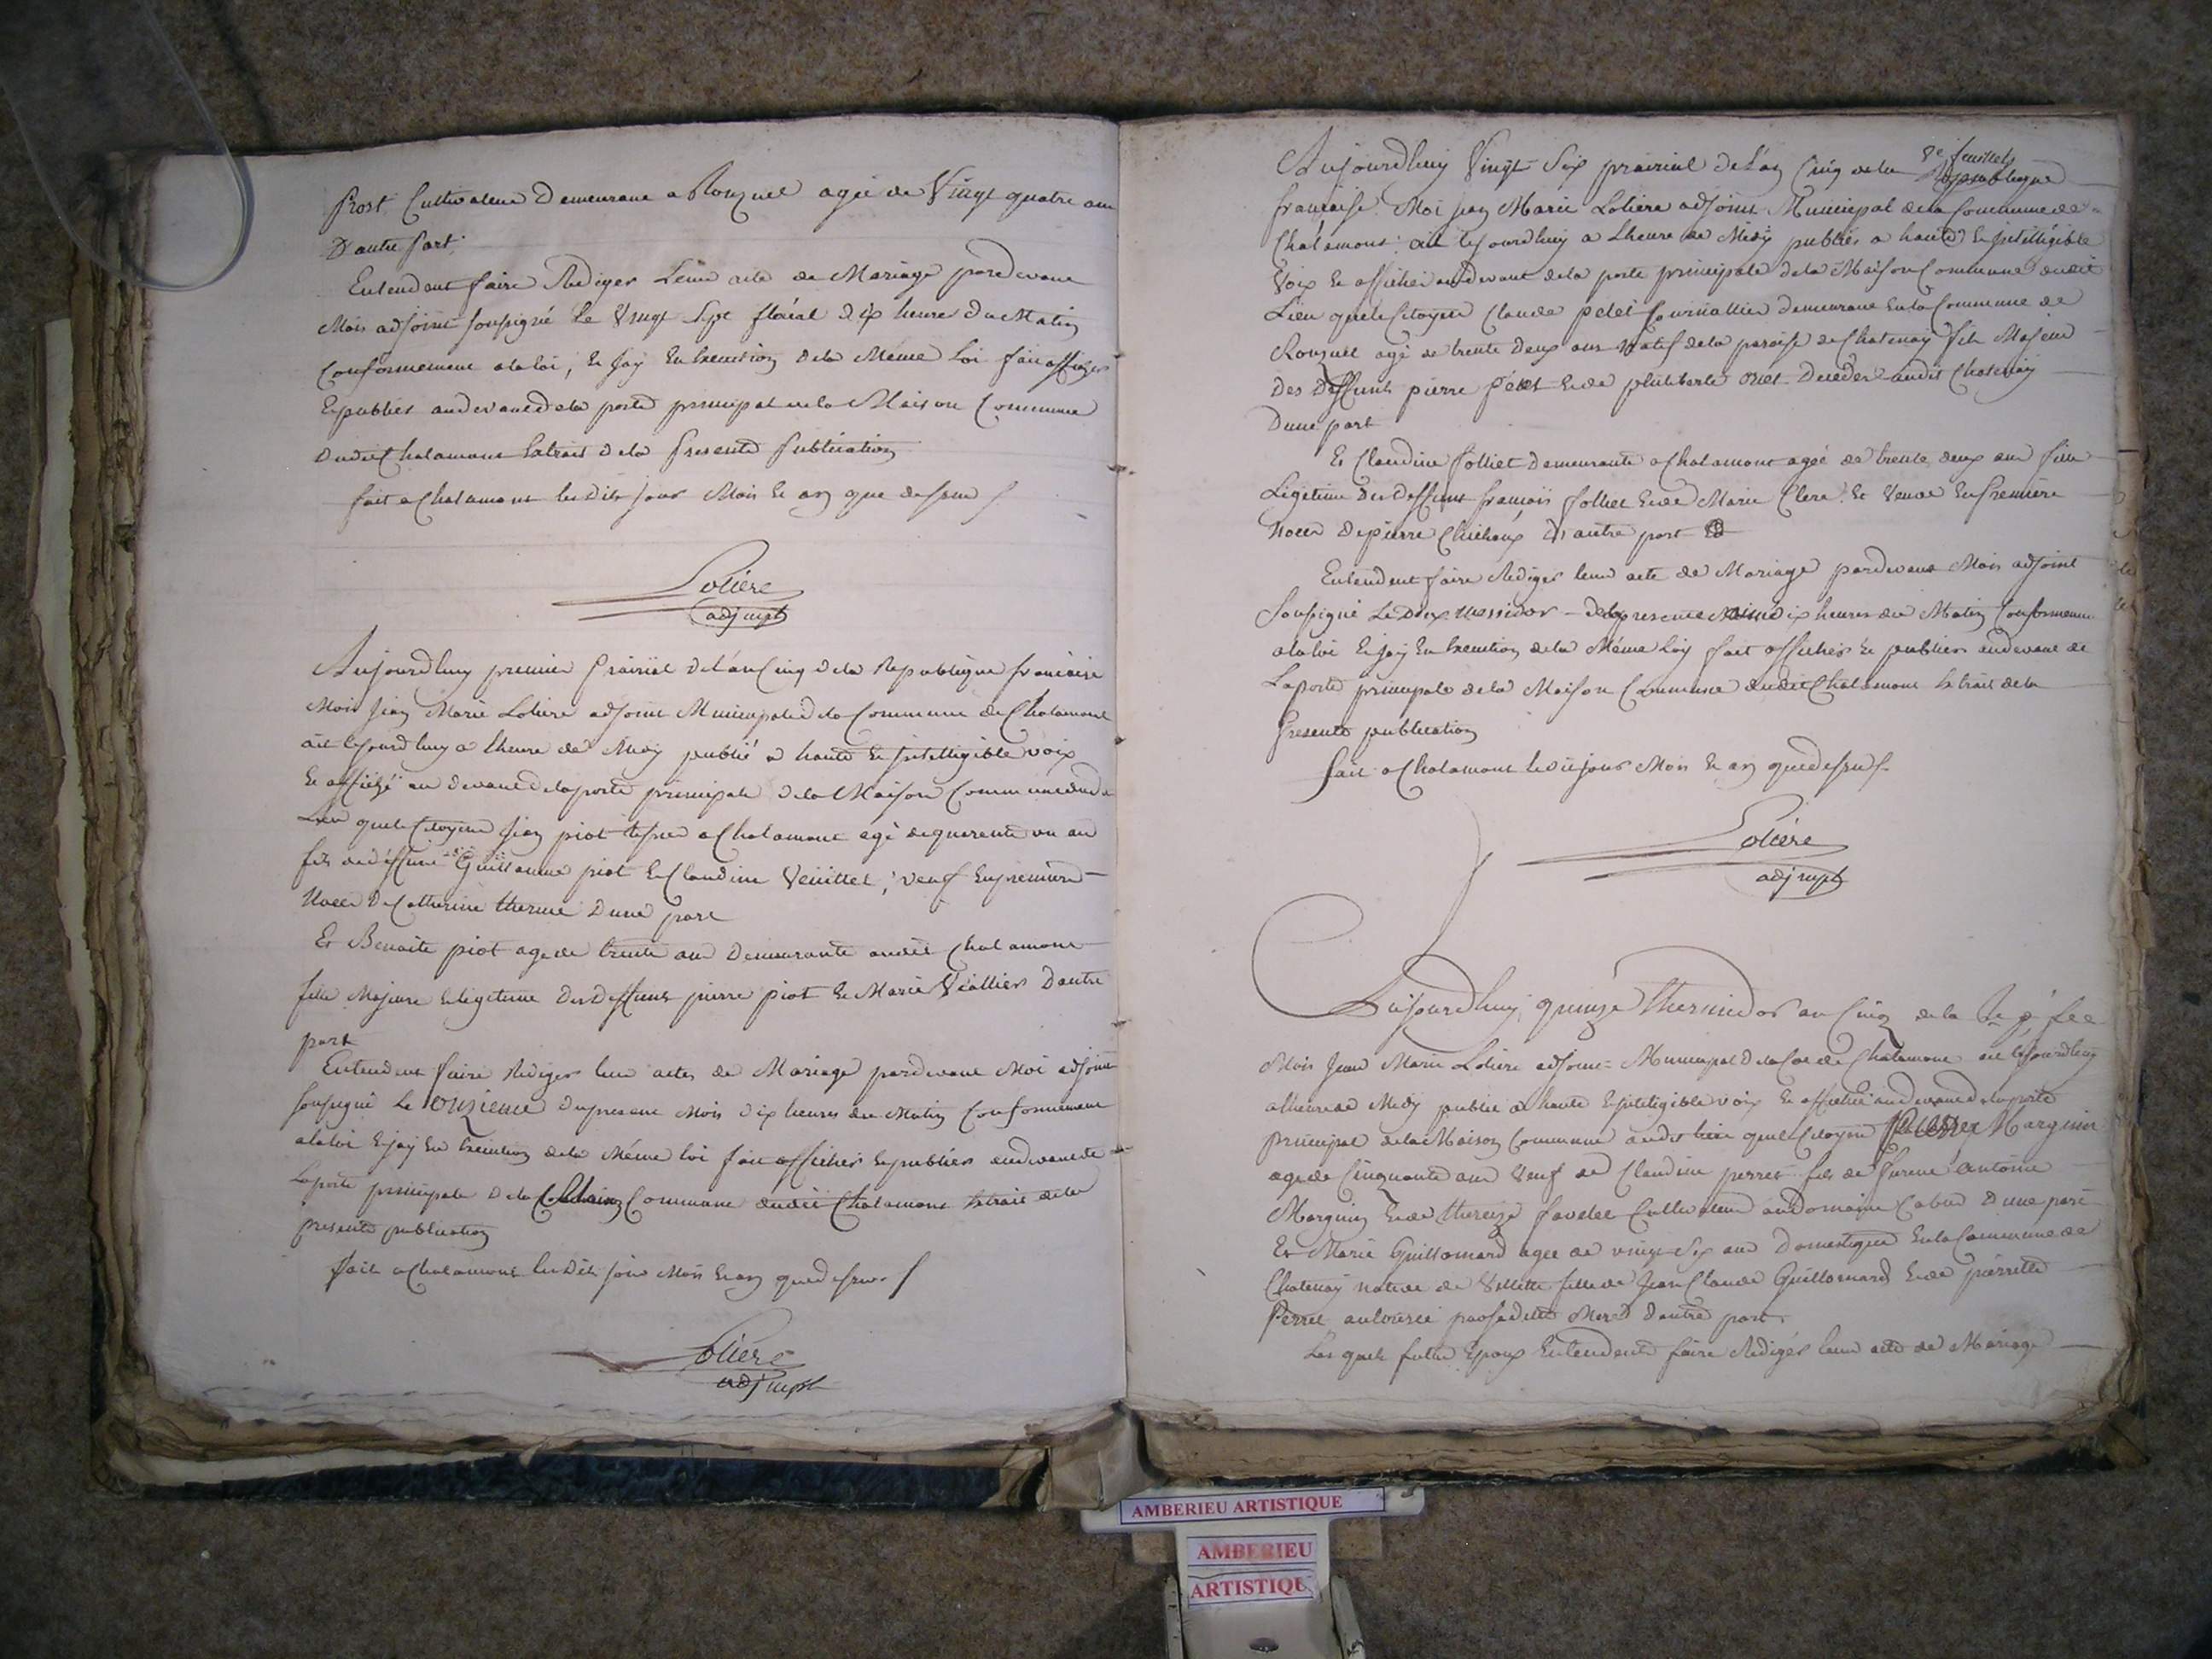 prost Cultivateur Demeurant a Ronzuel agée de Vingt quatre ans
D'autre part.
Entendent faire Rediger Leur acte de Mariage pardevant
Mois adjoint soussigné Le Vingt Sept floréal dix heures Du Matin
Conformement a la loi, Et Jay En Execution de la Méme Loi fait afficher
Et publier audevant de la porte principal de la Maison Commune
dudit Chalamont Extrait de la Presente Publication
fait a Chalamont les dits jour Mois Et an que dessus
Loliere
adj mpl
Aujourdhuy premier Prairial de l'an Cinq de la Republique francaise
Mois Jean Marie Loliere adjoint Municipale de la Commune de Chalamont
ait cejourdhuy a lheure de Midy publié a haute Et Intelligible voix
Et affiché au devant de la porte principale de la Maison Commune dudit
Lieu que le Citoyen Jean piot a Chalamont agé de quarente un an
fils de deffunt Guillaume piot Et Claudine Veuillet, veuf En premiere
Noces De Catherine therme Dune part
Et Benoite piot agé de trente ans Demeurante audit Chalamont
fille Majeure Et legitime Des Deffunts pierre piot Et Marie Viallier Dautre
part
Entendent faire Rediger leur actes de Mariage pardevant Moi adjoint
soussigné Le onzieme du present Mois dix heures du Matin Conformement
a la loi Et jay En Execution de la Méme loi fait afficher Et publier audevant de
La porte principale de la Commune dudit Chalamont Extrait de la
presente publication
fait a Chalamont les dits jour Mois Et an que dessus
Loliere
adj mpl
8e feuillet
Aujourdhuy Vingt Six prairial de l'an Cinq de la Republique
francaise. Moi Jean Marie Loliere adjoint Municipal de la Commune de
Chalamont ait cejourdhuy a Lheure de Midy publiér a haute Et Intelligible
Voix Et affichér audevant de la porte principale de la Maison Commune dudit
Lieu que le Citoyen Claude petet demeurant En la Commune de
Ronzuel agé de trente Deux ans Natif de la paroisse de Chatenay fils Majeur
Des Deffunts pierre petet Et de philiberte Decedés audit Chatenay
Dune part
Et Claudine folliet Demeurante a Chalamont agée de trente deux ans fille
Legitime Des Deffunt françois folliet Et de Marie Clere Et Veuve En premiere
Noces De pierre D'autre part
Entendent faire Rediger leur acte de Mariage pardevant Mois adjoint
Soussigné Le Deux Messidor de la presente année dix heures du Matin Conformement
a la loi Et jay En Execution de la Méme Loy fait afficher Et publier audevant de
La porte principale de la Maison Commune dudit Chalamont Extrait de la
Presente publication
fait a Chalamont les dit jour Mois Et an que dessus
Loliere
adj mpl
Aujourdhuy quinze thermidor an Cinq de la
Mois Jean Marie Loliere adjoint Municipal de la Cne de Chalamont ait cejourdhuy
a lheure de Midy publié a haute Et intelligible voix Et affiché audevant de la porte
principal de la Maison Commune dudit lieu que le Citoyen Marguin
agé de Cinquante ans Veuf de Claudine perret fils de Antoine
Marguin Et de thereze favelet Cultivateur au Domaine Dune part
Et Marie Guillomard agée de vingt Six ans Domestique En la Commune de
Chatenay native de Villette fille de Jean Claude Guillomard Et de pierrette
Perret autorisée par sadite Mere D'autre part.
Les quels futur Epoux Entendent faire Rediger leur acte de Mariage
AMBERIEU ARTISTIQUE
AMBERIEU
ARTISTIQU